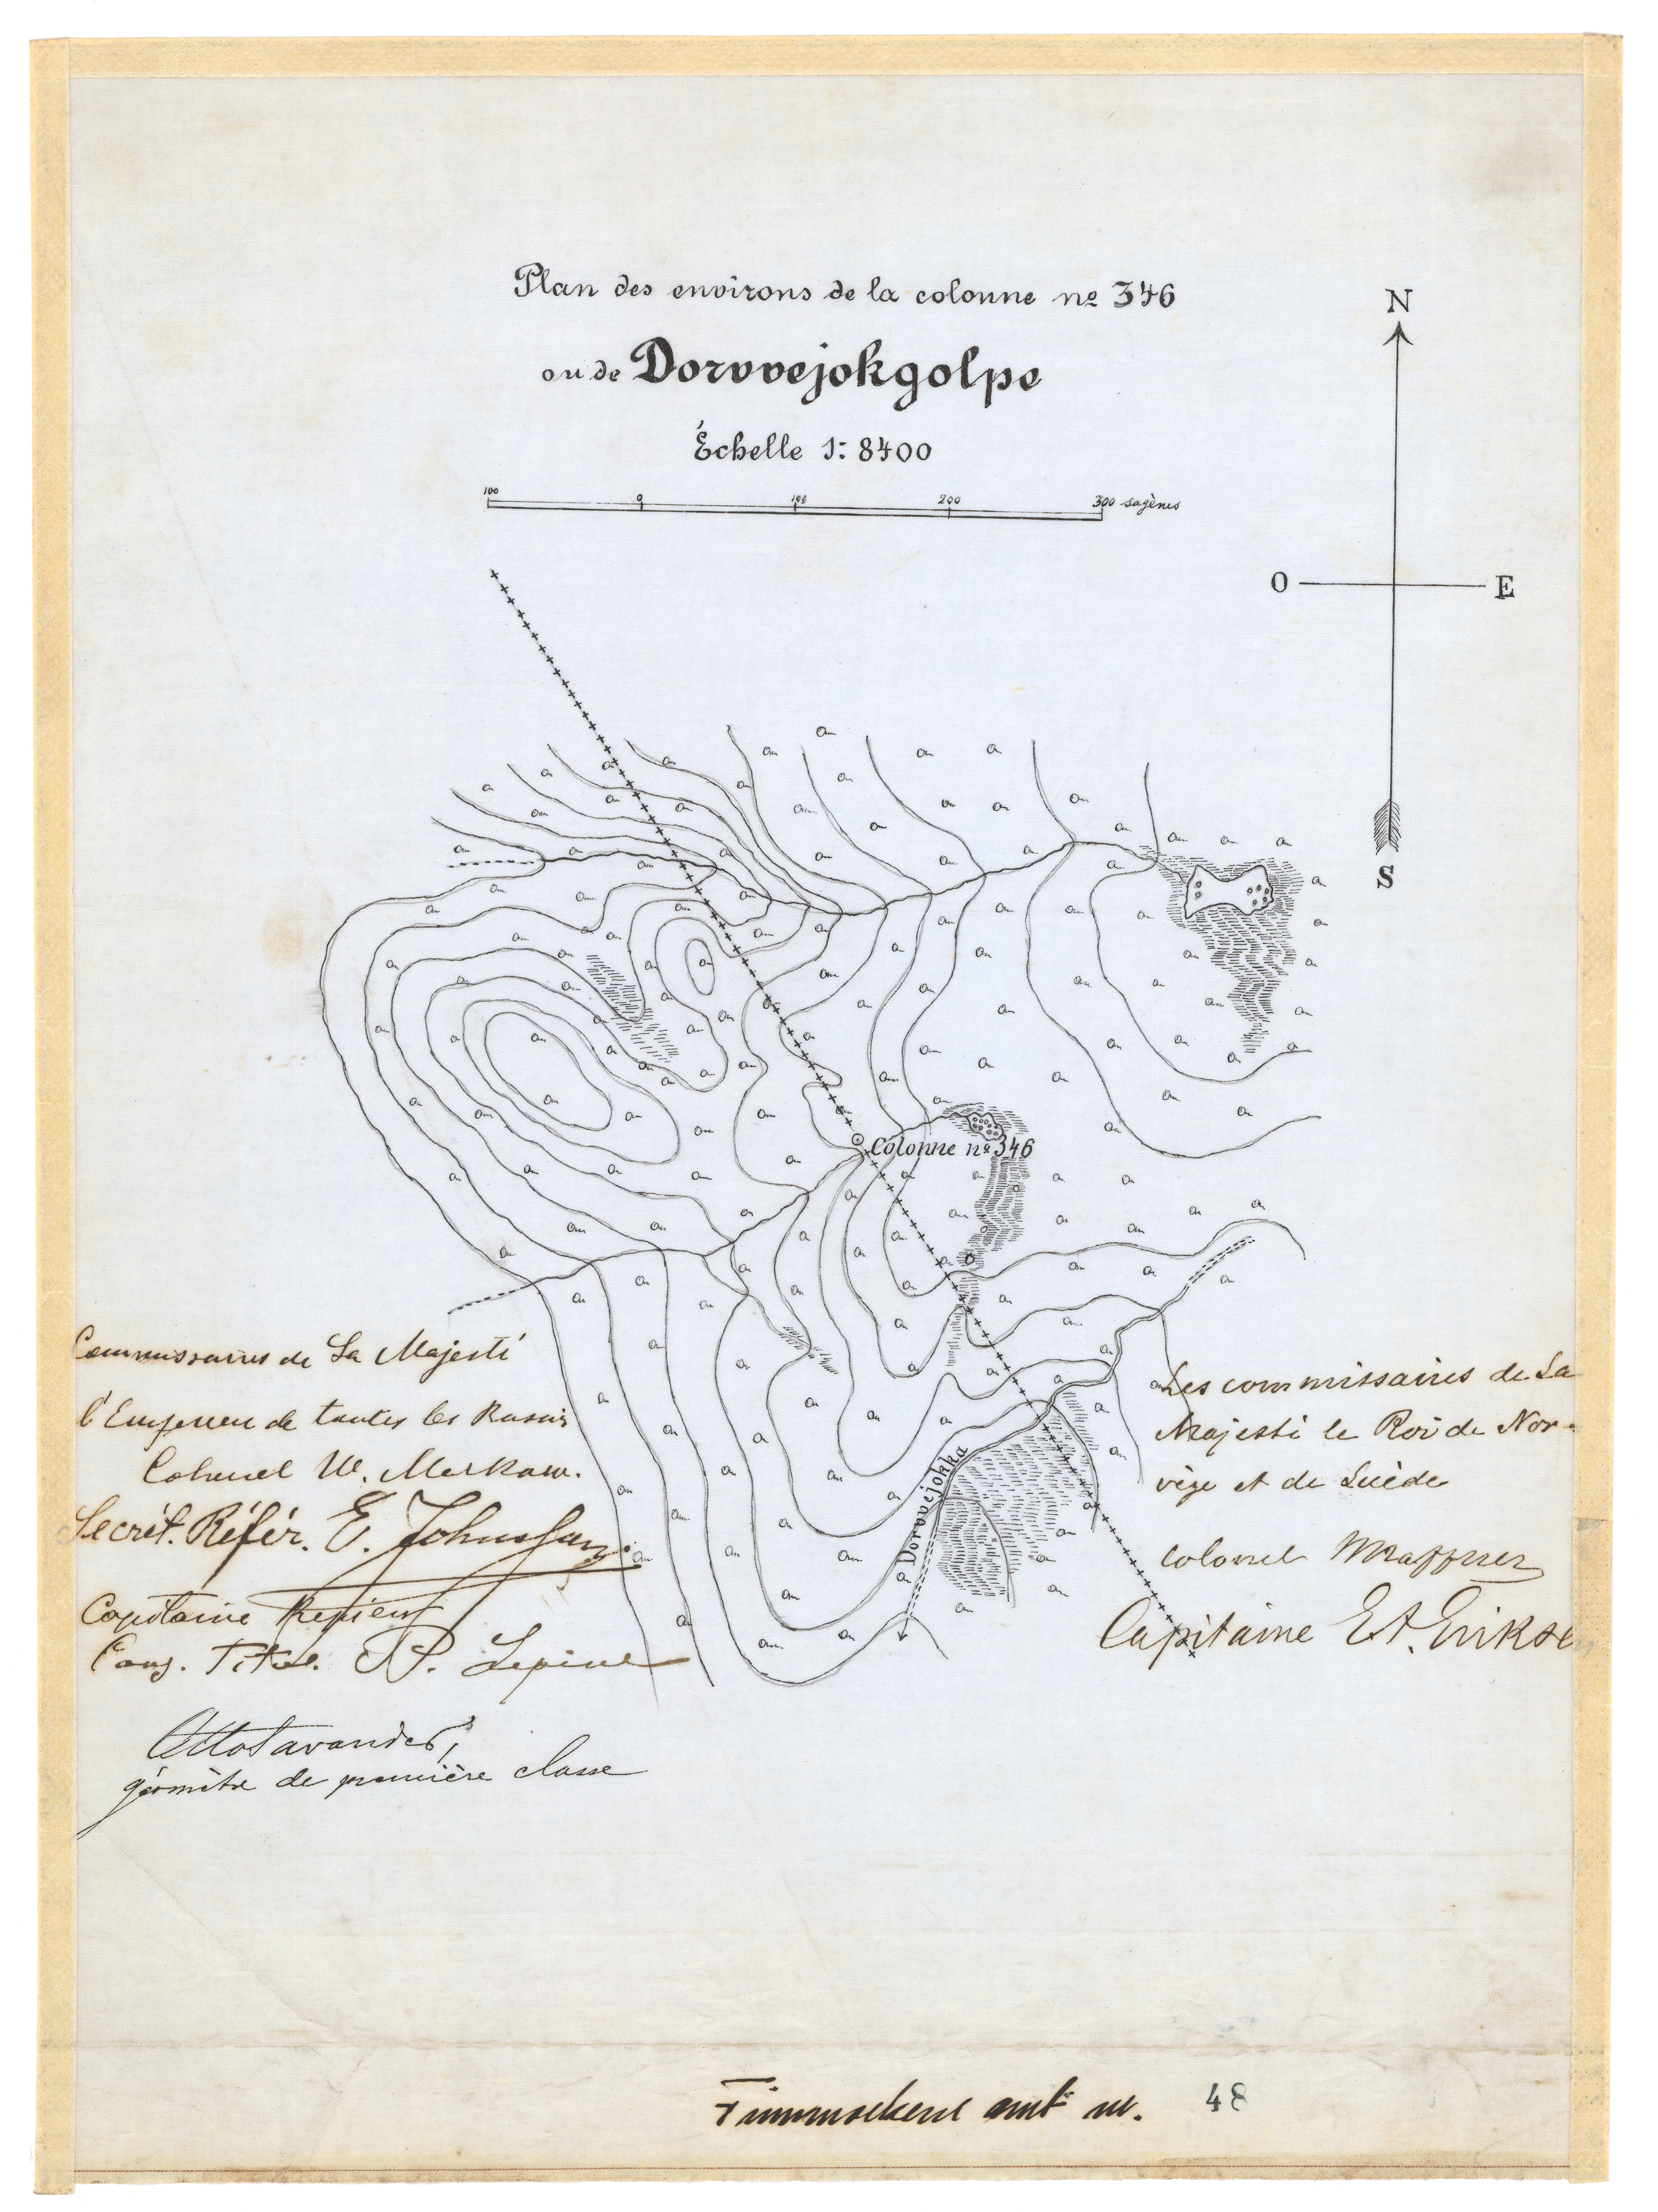 Plan des environs de la colonne nº 346
ou de Dorvvejokgolpe
Échelle 1:8400
100 0 100 200 300 sagènes
N
O E
S
Colonne nº 346
Dorvvejokka
Commissaires de Sa Majesté
l'Empereur de toutes les Russies
Colonel W.
Secrét. Référ. E.
Capitaine
Cons. Titul. P.
géomètre de première classe
Les commissaires de Sa
Majesté le Roi de Nor-
vège et de Suède
Colonel
Capitaine
Finmarkens amt nr. 48